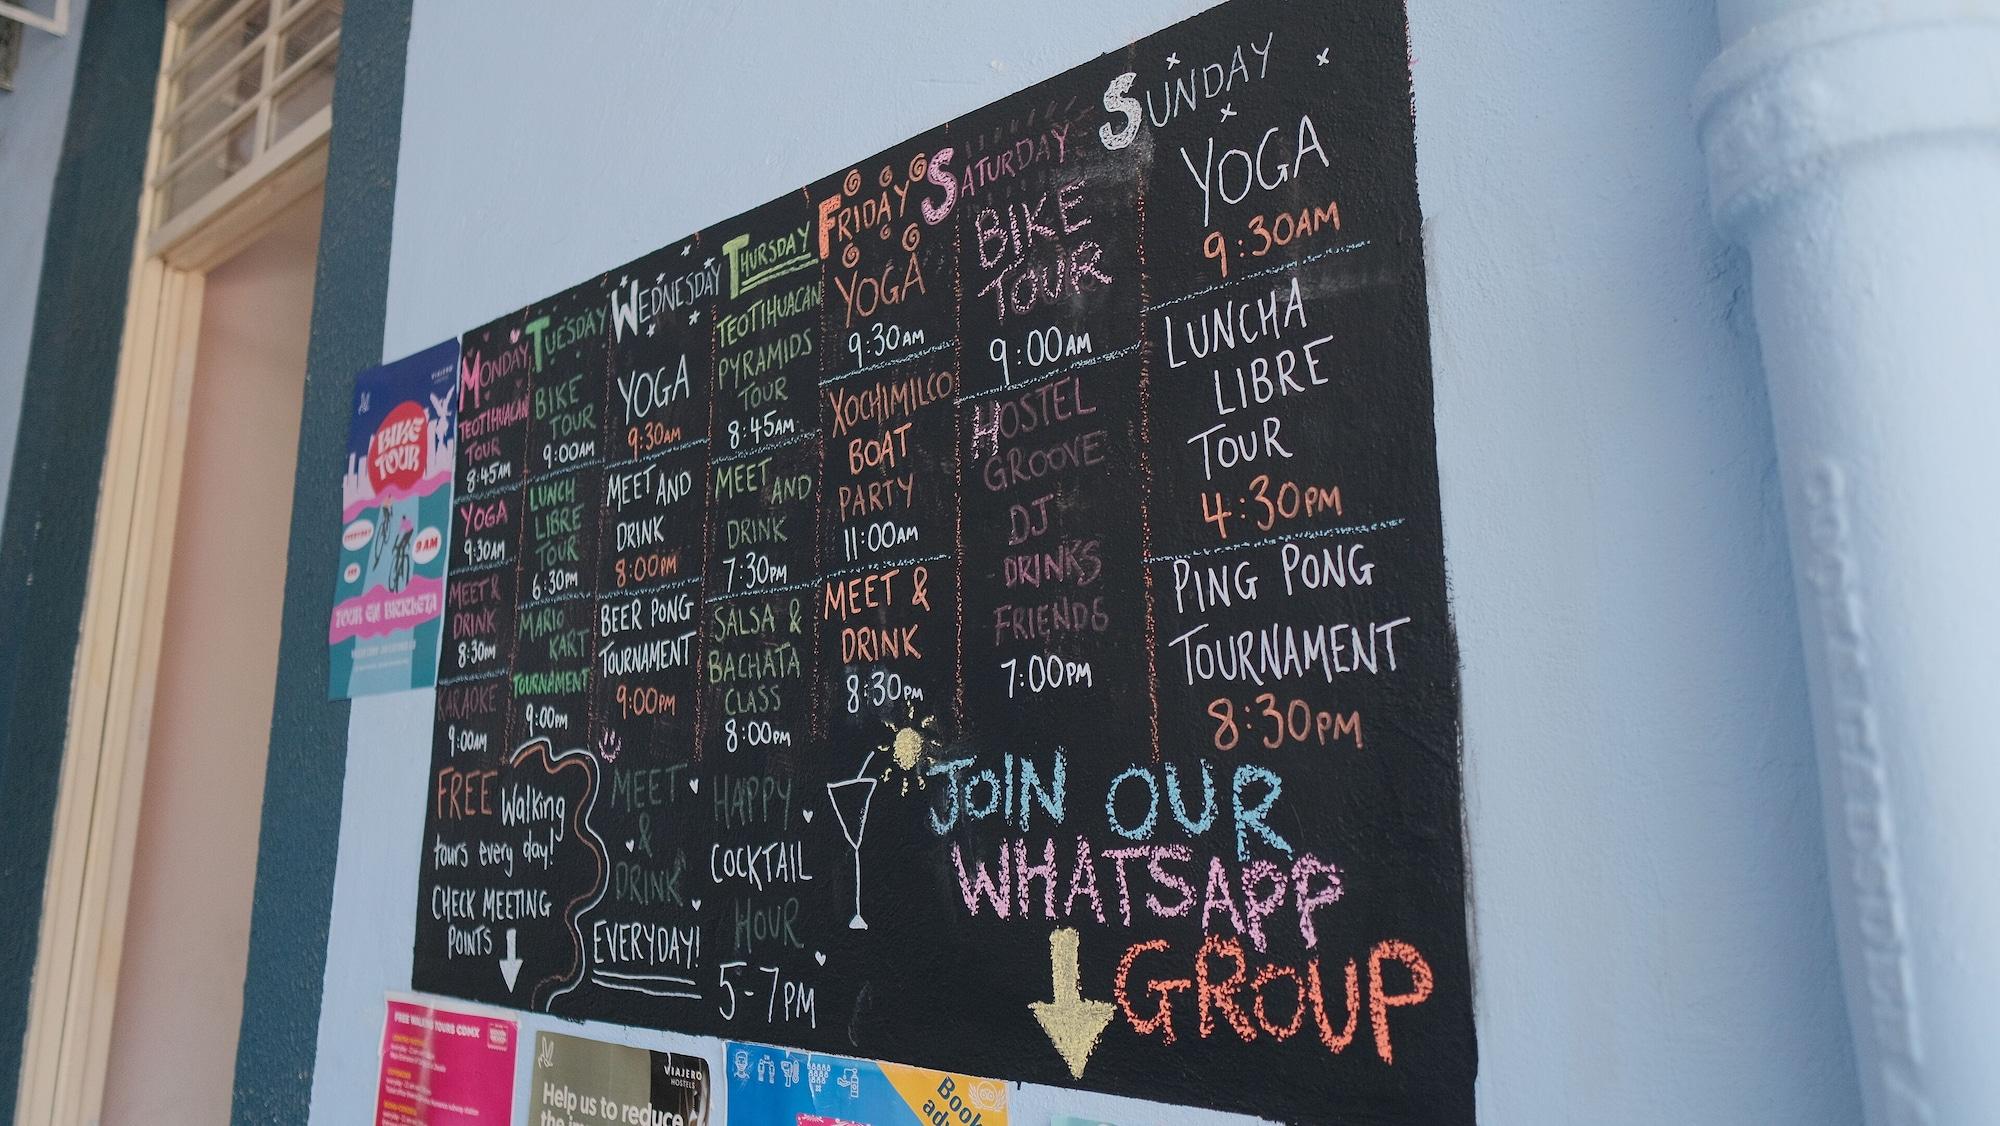 MONDAY
TEOTIHUACAN
TOUR
8:45AM
YOGA
9:30AM
MEET &
DRINK
8:30PM
KARAOKE
9:00AM
TUESDAY
BIKE
TOUR
9:00AM
LUNCH
LIBRE
TOUR
6:30PM
MARIO
KART
TOURNAMENT
9:00PM
WEDNESDAY
YOGA
9:30AM
MEET AND
DRINK
8:00PM
BEER PONG
TOURNAMENT
9:00PM
THURSDAY
TEOTIHUACAN
PYRAMIDS
TOUR
8:45AM
MEET AND
DRINK
7:30PM
SALSA &
BACHATA
CLASS
8:00PM
FRIDAY
YOGA
9:30AM
XOCHIMILCO
BOAT
PARTY
11:00AM
MEET &
DRINK
8:30PM
SATURDAY
BIKE
TOUR
9:00AM
HOSTEL
GROOVE
DJ
DRINKS
FRIENDS
7:00PM
SUNDAY
YOGA
9:30AM
LUNCHA
LIBRE
TOUR
4:30PM
PING PONG
TOURNAMENT
8:30PM
FREE Walking
tours every day!
CHECK MEETING
POINTS
MEET
&
DRINK
EVERYDAY!
HAPPY
COCKTAIL
HOUR
5-7PM
JOIN OUR
WHATSAPP
GROUP
VIAJERO
BIKE
TOUR
EVERYDAY
9 AM
TOUR EN BICICLETA
FREE WALKING TOURS CDMX
VIAJERO
HOSTELS
Help us to reduce
the
Book